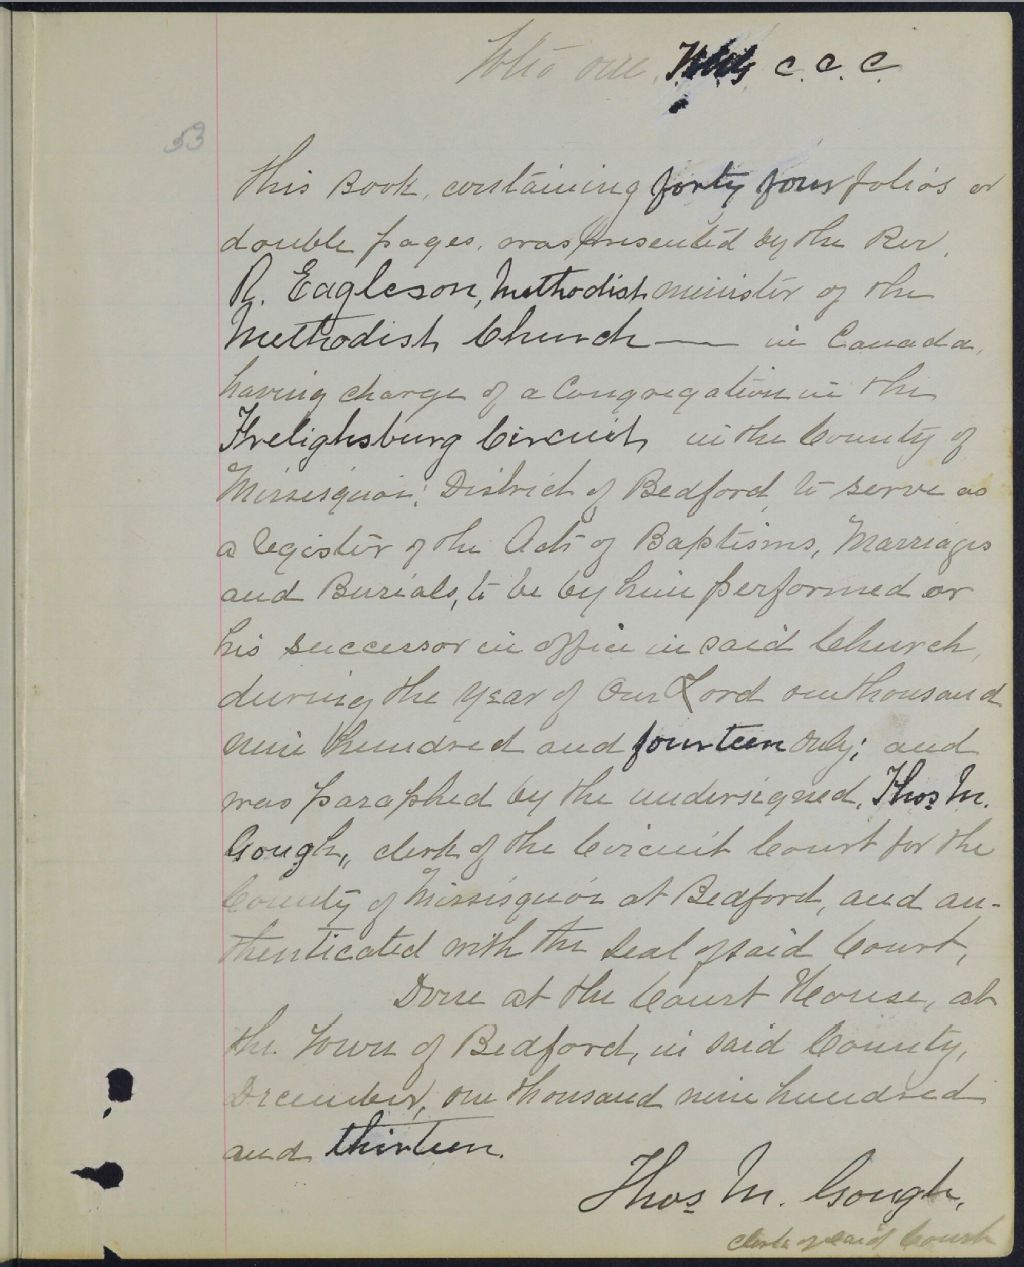 Folio one, C. C. C.
53
This Book, containing forty four folios or
double pages, was presented by the Rev.
R. Eagleson, Methodist minister of the
Methodist Church —— in Canada,
having charge of a Congregation in the
Frelighsburg Circuit, in the County of
Missisquoi, District of Bedford, to serve as
a register of the Acts of Baptisms, Marriages
and Burials, to be by him performed or
his successor in office in said Church,
during the year of Our Lord one thousand
nine hundred and fourteen only; and
was paraphed by the undersigned, Thos M.
Gough, clerk of the Circuit Court for the
County of Missisquoi at Bedford, and au-
thenticated with the seal of said Court,
Done at the Court House, at
the Town of Bedford, in said County,
December, one thousand nine hundred
and thirteen.
Thos M. Gough,
Clerk of said Court